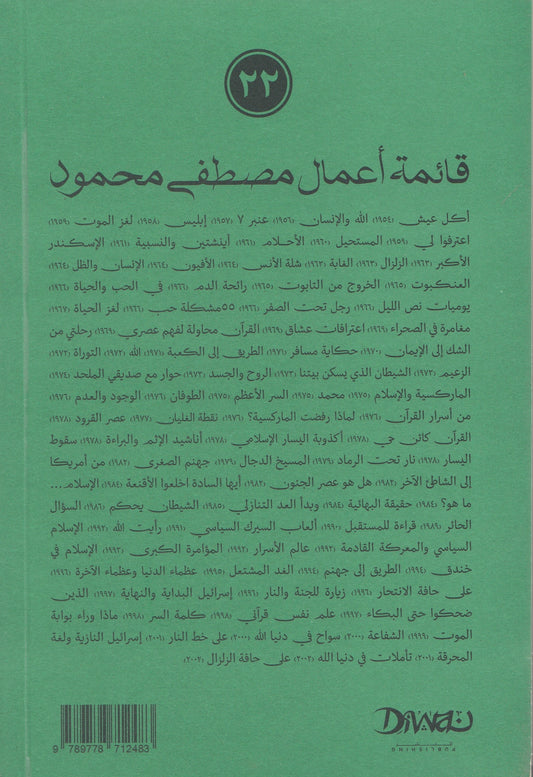 ٢٢
قائمة أعمال مصطفى محمود
أكل عيش (١٩٥٤) الله والإنسان (١٩٥٦) عنبر ٧ (١٩٥٧) إبليس (١٩٥٨) لغز الموت (١٩٥٩)
اعترفوا لي (١٩٥٩) المستحيل (١٩٦٠) الأحلام (١٩٦١) أينشتين والنسبية (١٩٦١) الإسكندر
الأكبر (١٩٦٣) الزلزال (١٩٦٣) الغابة (١٩٦٣) شلة الأنس (١٩٦٤) الأفيون (١٩٦٤) الإنسان والظل (١٩٦٤)
العنكبوت (١٩٦٥) الخروج من التابوت (١٩٦٥) رائحة الدم (١٩٦٦) في الحب والحياة (١٩٦٦)
يوميات نص الليل (١٩٦٦) رجل تحت الصفر (١٩٦٦) ٥٥ مشكلة حب (١٩٦٦) لغز الحياة (١٩٦٧)
مغامرة في الصحراء (١٩٦٩) اعترافات عشاق (١٩٦٩) القرآن محاولة لفهم عصري (١٩٦٩) رحلتي من
الشك إلى الإيمان (١٩٧٠) حكاية مسافر (١٩٧١) الطريق إلى الكعبة (١٩٧١) الله (١٩٧٢) التوراة (١٩٧٢)
الزعيم (١٩٧٢) الشيطان الذي يسكن بيتنا (١٩٧٣) الروح والجسد (١٩٧٣) حوار مع صديقي الملحد (١٩٧٤)
الماركسية والإسلام (١٩٧٥) محمد (١٩٧٥) السر الأعظم (١٩٧٥) الطوفان (١٩٧٦) الوجود والعدم (١٩٧٦)
من أسرار القرآن (١٩٧٦) لماذا رفضت الماركسية؟ (١٩٧٦) نقطة الغليان (١٩٧٧) عصر القرود (١٩٧٨)
القرآن كائن حي (١٩٧٨) أكذوبة اليسار الإسلامي (١٩٧٨) أناشيد الإثم والبراءة (١٩٧٨) سقوط
اليسار (١٩٧٨) نار تحت الرماد (١٩٧٩) المسيخ الدجال (١٩٧٩) جهنم الصغرى (١٩٨٢) من أمريكا
إلى الشاطئ الآخر (١٩٨٢) هل هو عصر الجنون (١٩٨٣) أيها السادة اخلعوا الأقنعة (١٩٨٤) الإسلام...
ما هو؟ (١٩٨٤) حقيقة البهائية (١٩٨٤) وبدأ العد التنازلي (١٩٨٥) الشيطان يحكم (١٩٨٦) السؤال
الحائر (١٩٨٩) قراءة للمستقبل (١٩٩٠) ألعاب السيرك السياسي (١٩٩١) رأيت الله (١٩٩٢) الإسلام
السياسي والمعركة القادمة (١٩٩٢) عالم الأسرار (١٩٩٢) المؤامرة الكبرى (١٩٩٣) الإسلام في
خندق (١٩٩٤) الطريق إلى جهنم (١٩٩٤) الغد المشتعل (١٩٩٥) عظماء الدنيا وعظماء الآخرة (١٩٩٦)
على حافة الانتحار (١٩٩٦) زيارة للجنة والنار (١٩٩٦) إسرائيل البداية والنهاية (١٩٩٧) الذين
ضحكوا حتى البكاء (١٩٩٧) علم نفس قرآني (١٩٩٨) كلمة السر (١٩٩٨) ماذا وراء بوابة
الموت (١٩٩٩) الشفاعة (٢٠٠٠) سواح في دنيا الله (٢٠٠٠) على خط النار (٢٠٠١) إسرائيل النازية ولغة
المحرقة (٢٠٠١) تأملات في دنيا الله (٢٠٠٢) على حافة الزلزال (٢٠٠٢)
Diwan
PUBLISHING
9 789778 712483